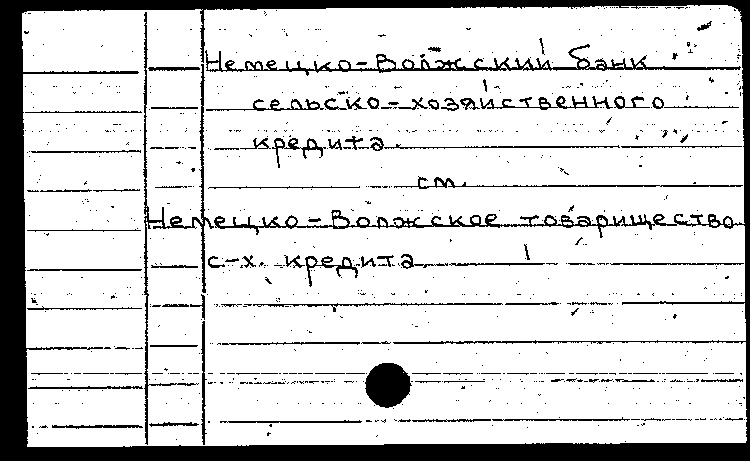 Немецко-Волжский банк
сельско-хозяйственного
кредита.
см.
Немецко-Волжское товарищество
с-х. кредита.